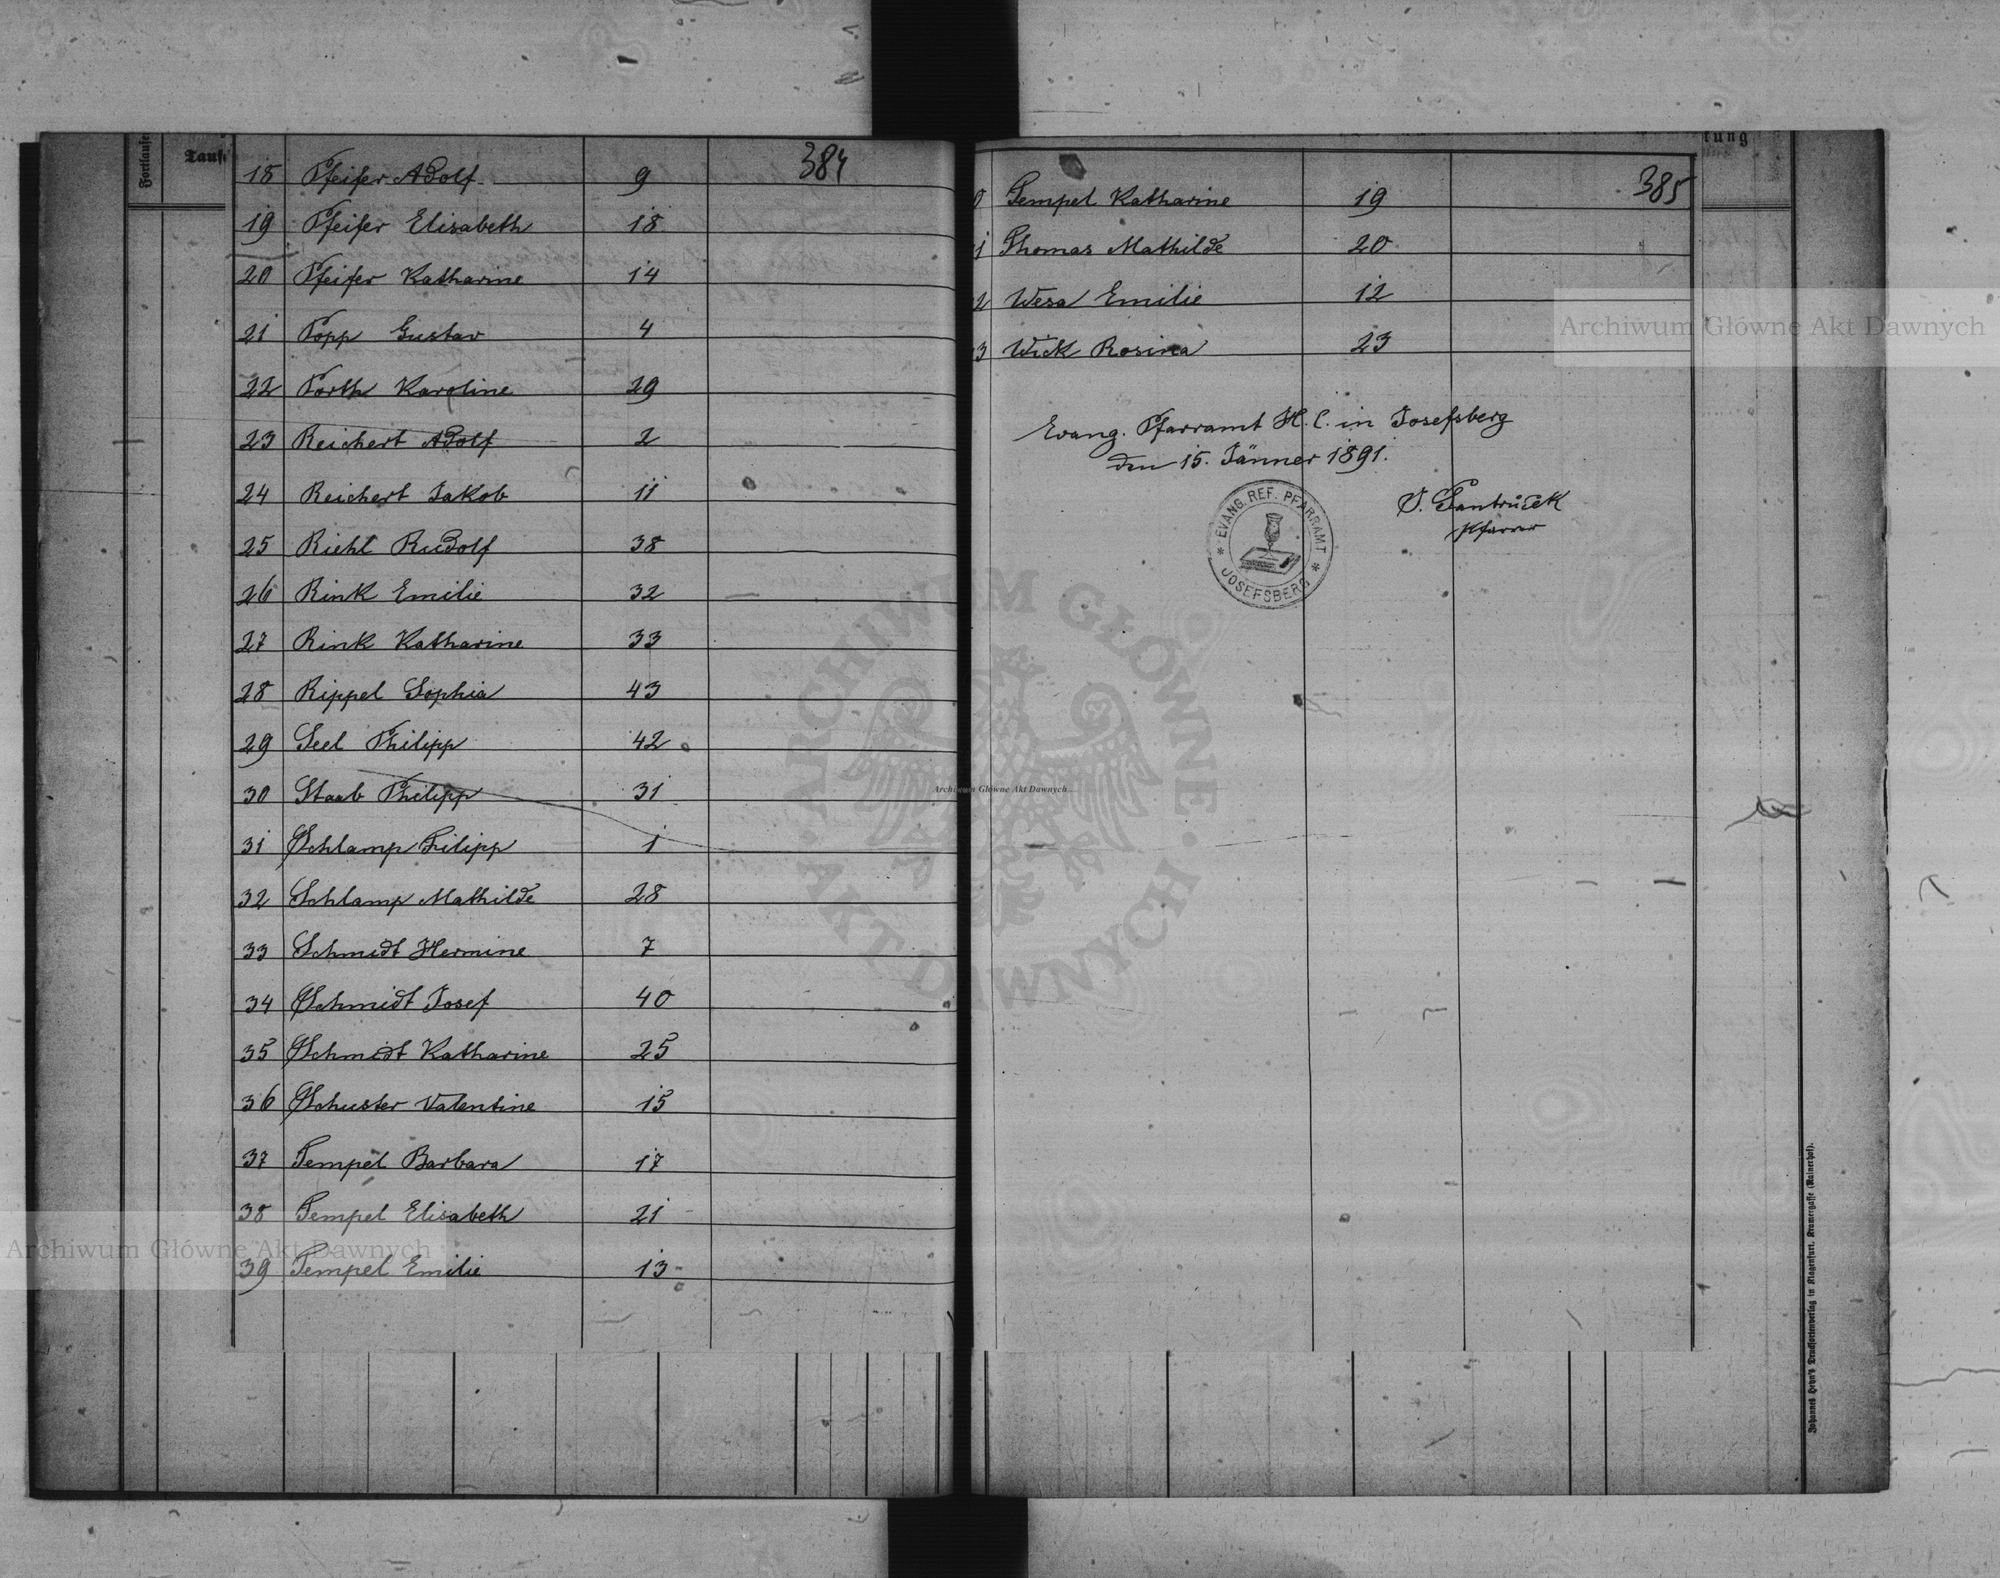 Fortlaufe
Taufe
384
18 Pfeifer Adolf 9
19 Pfeifer Elisabeth 18
20 Pfeifer Katharine 14
21 Popp Gustav 4
22 Porth Karoline 29
23 Reichert Adolf 2
24 Reichert Jakob 11
25 Riehl Rudolf 38
26 Rink Emilie 32
27 Rink Katharine 33
28 Rippel Sophia 43
29 Seel Philipp 42
30 Staab Philipp 31
31 Schlamp Filipp 1
32 Schlamp Mathilde 28
33 Schmidt Hermine 7
34 Schmidt Josef 40
35 Schmidt Katharine 25
36 Schuster Valentine 15
37 Tempel Barbara 17
38 Tempel Elisabeth 21
39 Tempel Emilie 13
tung
385
0 Tempel Katharine 19
1 Thomas Mathilde 20
2 Wesa Emilie 12
3 Wick Rosina 23
Evang. Pfarramt H. C. in Josefsberg
den 15. Jänner 1891.
Pfarrer
* EVANG. REF. PFARRAMT *
JOSEFSBERG
Johannes Heyn's Drucksortenverlag in Klagenfurt, Kramergasse (Rainerhof).
Archiwum Główne Akt Dawnych
Archiwum Główne Akt Dawnych
Archiwum Główne Akt Dawnych
ARCHIWUM GŁÓWNE · AKT DAWNYCH ·